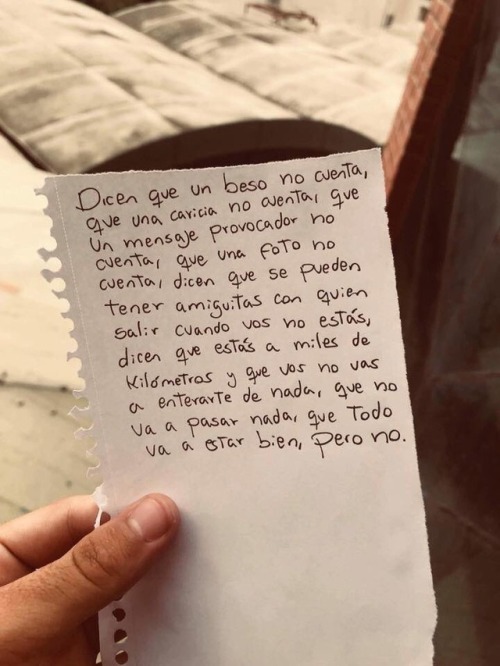 Dicen que un beso no cuenta,
que una caricia no cuenta, que
un mensaje provocador no
cuenta, que una foto no
cuenta, dicen que se pueden
tener amiguitas con quien
salir cuando vos no estás,
dicen que estás a miles de
kilómetros y que vos no vas
a enterarte de nada, que no
va a pasar nada, que todo
va a estar bien, pero no.